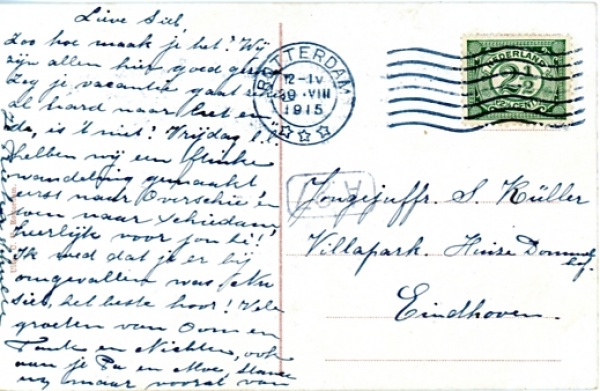 Lieve Siel,
Zoo hoe maak je het? Wij
zijn allen hier goed
Zeg je vacantie gaat
al hard naar het ein
de, is 't niet? Vrijdag l.l.
hebben wij een flinke
wandeling gemaakt
eerst naar Overschie en
toen naar Schiedam
heerlijk voor jou hè!!
Ik wed dat je er bij
omgevallen was. Nu
Siel, het beste hoor! Vele
groeten van Oom en
Tante en Nichten, ook
aan je Pa en Moe,
maar vooral van
ROTTERDAM
12-1V
30 VIII
1915
NEDERLAND
2½
2½ CENT
Jongejuffr. S. Küller
Villapark. Huize Dommel
hof.
Eindhoven.